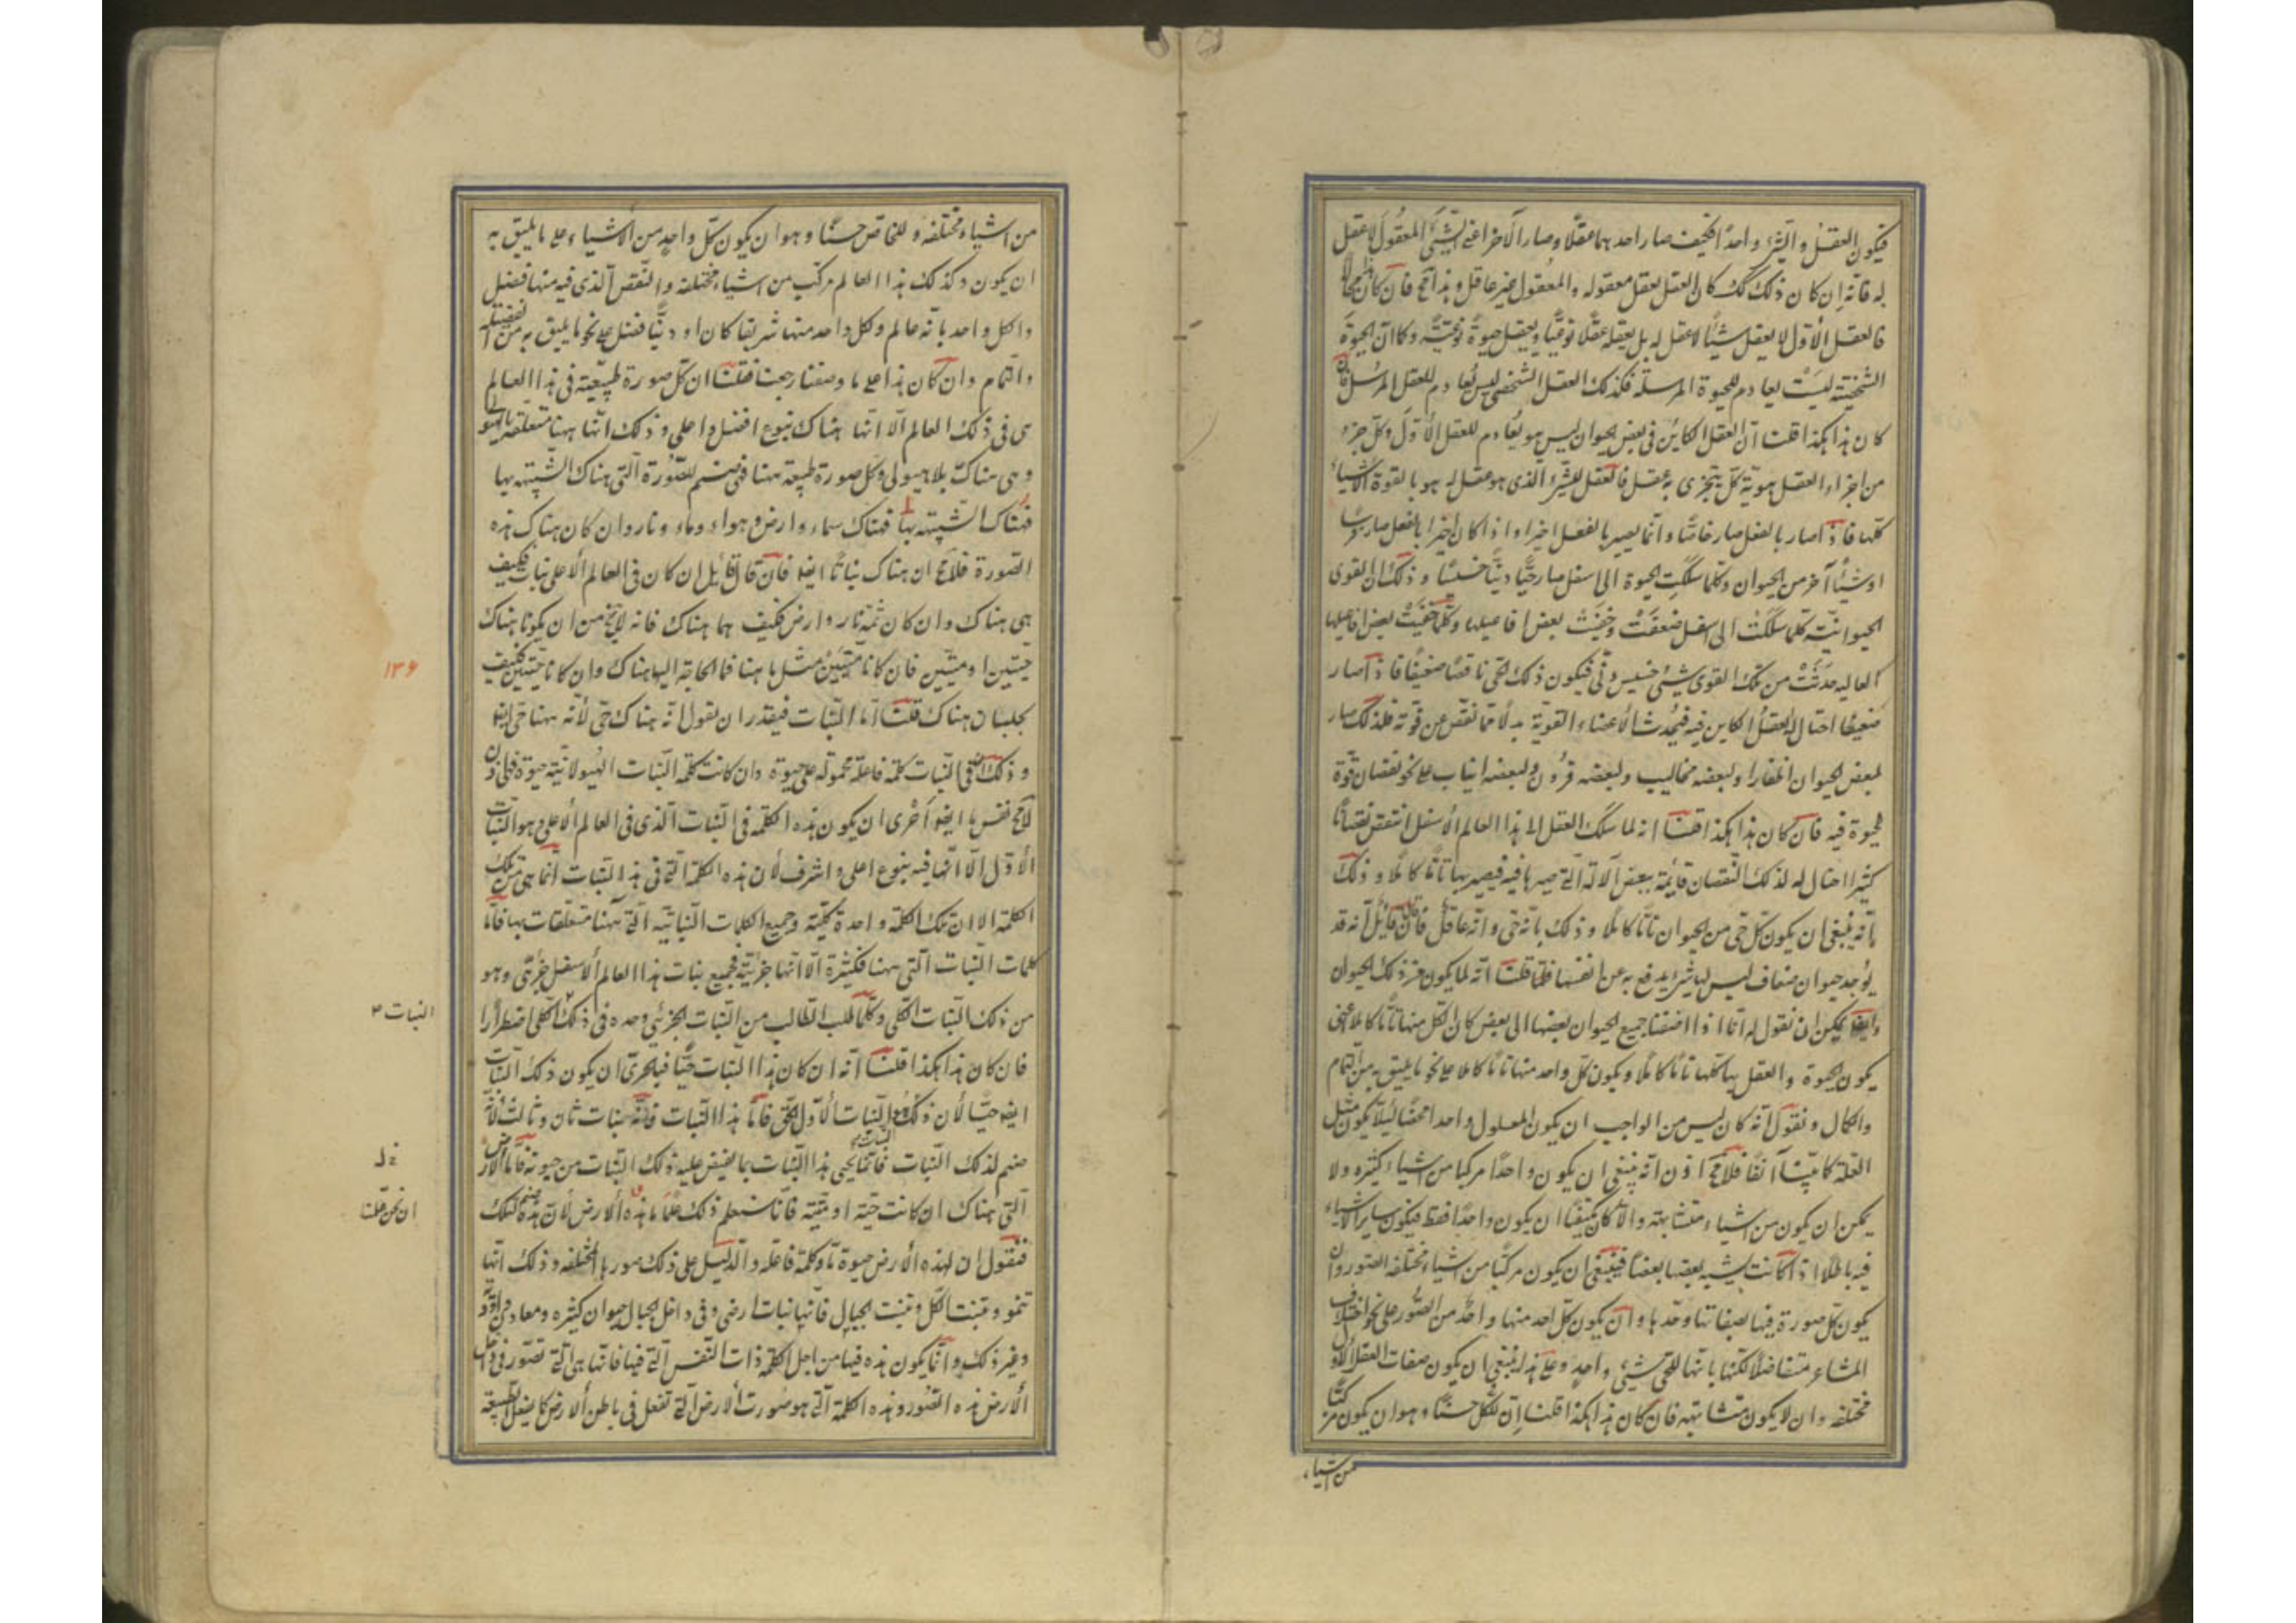 فيكون العقل والشئ واحدًا فكيف صار احدهما عقلًا وصار الآخر اعنى الشيئ المعقول لا عقل
له فانه ان كان ذلك كك كان العقل يعقل معقوله والمعقول غير عاقل وهذا مح فان كان هذا محالًا
فالعقل الأول لا يعقل شيئًا لا عقل له بل يعقله عقلًا نوعيًّا ويعقل حيوة نوعيّة وكما ان الحيوة
الشخصية ليست بعادم للحيوة المرسلة فكذلك العقل الشخصى ليس بعادم للعقل المرسل فان
كان هذا هكذا قلت ان العقل الكائن فى بعض الحيوان ليس هو بعادم للعقل الأول وكل جزء
من اجزاء العقل هو به كل يتجزى به عقل فالعقل للشئ الذى هو عقل له هو بالقوة الأشياء
كلها فاذا صار بالفعل صار خاصًّا وانما يصير بالفعل اخيرا واذا كان اخيرا بالفعل صار فرسًا
او شيئًا آخر من الحيوان وكلما سلكت الحيوة الى اسفل صار حيًّا دنيًّا خسيسًا وذلك ان القوى
الحيوانيّة كلما سلكت الى اسفل ضعفت وخفيت بعض افاعيلها وكلما خفيت بعض افاعيلها
العاليه حدثت من تلك القوى شيئ خسيس دنى فيكون ذلك الحى ناقصًا ضعيفًا فاذا صار
ضعيفًا احتال له العقل الكاين فيه فيحدث الأعضاء القوية بدلًا مما نقص عن قوته فلذلك صار
لبعض الحيوان اظفارا ولبعضه مخاليب ولبعضه قرون ولبعضه انياب على نحو نقصان قوة
الحيوة فيه فان كان هذا هكذا قلنا انه لما سلك العقل الى هذا العالم الأسفل انتقص نقصانًا
كثيرا احتال له لذلك النقصان قائمة ببعض آلاته التى صيرها فيه فيصير بها تامًّا كاملًا وذلك
بانه ينبغى ان يكون كل حى من الحيوان تامًّا كاملًا وذلك بانه حى وانه عاقل فان قال قائل انه قد
يوجد حيوان ضعاف ليس لها شئ يدفع به عن انفسها قلنا انه لما يكون من ذلك الحيوان
وايضا يمكن ان نقول له انا اذا اضفنا جميع الحيوان بعضها الى بعض كان الكل منها تامًّا كاملًا اعنى
يكون الحيوة والعقل بها كلها تامًّا كاملًا ويكون كل واحد منها تامًّا كاملا على نحو ما يليق به من التمام
والكمال ونقول انه كان ليس من الواجب ان يكون المعلول واحدا محضًا لئلا يكون مثل
العلة كما بيّنا آنفًا فلامح اذن انه ينبغى ان يكون واحدًا مركبا من اشياء كثيره ولا
يمكن ان يكون من اشياء متشابهة والا كان مكتفيًا ان يكون واحدًا فقط فيكون ساير الأشياء
فيه باطلا اذا كانت يشبه بعضها بعضًا فينبغى ان يكون مركبًا من اشياء مختلفة الصور وان
يكون كل صورة فيها بصفاتها وحدها وان يكون كل احد منها واحد من الصور على نحو اختلاف
المشاعر متفاضلًا لكنها بانها للحى شيئ واحد وعلى هذا ينبغى ان يكون صفات العقل الأول
مختلفه وان لا يكون متشابهه فان كان هذا هكذا قلنا ان للكل حسنًا وهو ان يكون مركبًا
من اشياء
من اشياء مختلفه وللخاص حسنًا وهو ان يكون كل واحد من الأشياء على ما يليق به
ان يكون وكذلك هذا العالم مركب من اشياء مختلفه والنقص الذى فيه منها فضل
والكل واحد بانه عالم وكل واحد منها شريفا كان او دنيًّا فضل على نحو ما يليق به من الفضيلة
والتمام وان كان هذا على ما وصفنا رجعنا فقلنا ان كل صورة طبيعية فى هذا العالم
هى فى ذلك العالم الا انها هناك بنوع افضل واعلى وذلك انها ههنا متعلقة بالهيولى
وهى هناك بلا هيولى وكل صورة طبيعية ههنا فهى صنم للصورة التى هناك الشبيهة بها
فهناك الشبيهة بها فهناك سماء وارض وهواء وماء ونار وان كان هناك هذه
الصورة فلامح ان هناك نباتًا ايضا فان قال قائل ان كان فى العالم الأعلى نبات فكيف
هى هناك وان كان ثمة نار وارض فكيف هما هناك فانه لا يخ من ان يكونا هناك
حيّين او ميّتين فان كانا ميّتين مثل ما هنا فما الحاجة اليهما هناك وان كانا حيّين فكيف
يحييان هناك قلنا اما النبات فيقدر ان يقول انه هناك حى لأنه ههنا حى ايضا
وذلك ان فى النبات كلمة فاعلة محمولة على حيوة وان كانت كلمة النبات الهيولانية حيوة فهى اذن
لامح نفس ما ايضا أحرى ان يكون هذه الكلمة فى النبات الذى فى العالم الأعلى وهو النبات
الأول الا انها فيه بنوع اعلى واشرف لأن هذه الكلمة التى فى هذا النبات انما هى من تلك
الكلمة الا ان تلك الكلمة واحدة كلية وجميع الكلمات النباتية التى ههنا متعلقات بها فاما
كلمات النبات التى ههنا فكثيرة الا انها جزئية فجميع نبات هذا العالم الأسفل جزئى وهو
من ذلك النبات الكلى وكلما طلب الطالب من النبات الجزئى وجده فى ذلك الكلى اضطرارًا
فان كان هذا هكذا قلنا انه ان كان هذا النبات حيًّا فبالحرى ان يكون ذلك النبات
ايضا حيًّا لأن ذلك هو النبات الأول الحى فاما هذا النبات فانه نبات ثان وثالث لأنه
صنم لذلك النبات فانما يحيى هذا النبات بما يفيض عليه ذلك النبات من حيوته فاما الأرض
التى هناك ان كانت حية او ميّتة فانا سنعلم ذلك علمًا ما هذه الأرض لأن هذه صنم لتلك
فنقول ان لهذه الأرض حيوة ما وكلمة فاعله والدليل على ذلك صورها المختلفه وذلك انها
تنمو وتنبت الكل وتنبت الجبال فانها نبات ارضى وفى داخل الجبال حيوان كثيره ومعادن واودية
وغير ذلك وانما يكون هذه فيها من اجل الكلمة ذات النفس التى فيها فانها هى التى تصور فى داخل
الأرض هذه الصور وهذه الكلمة التى هو صورت الأرض التى تفعل فى باطن الأرض كما يفعل الطبيعة
۱۳۶
النبات
ان نحن علمنا